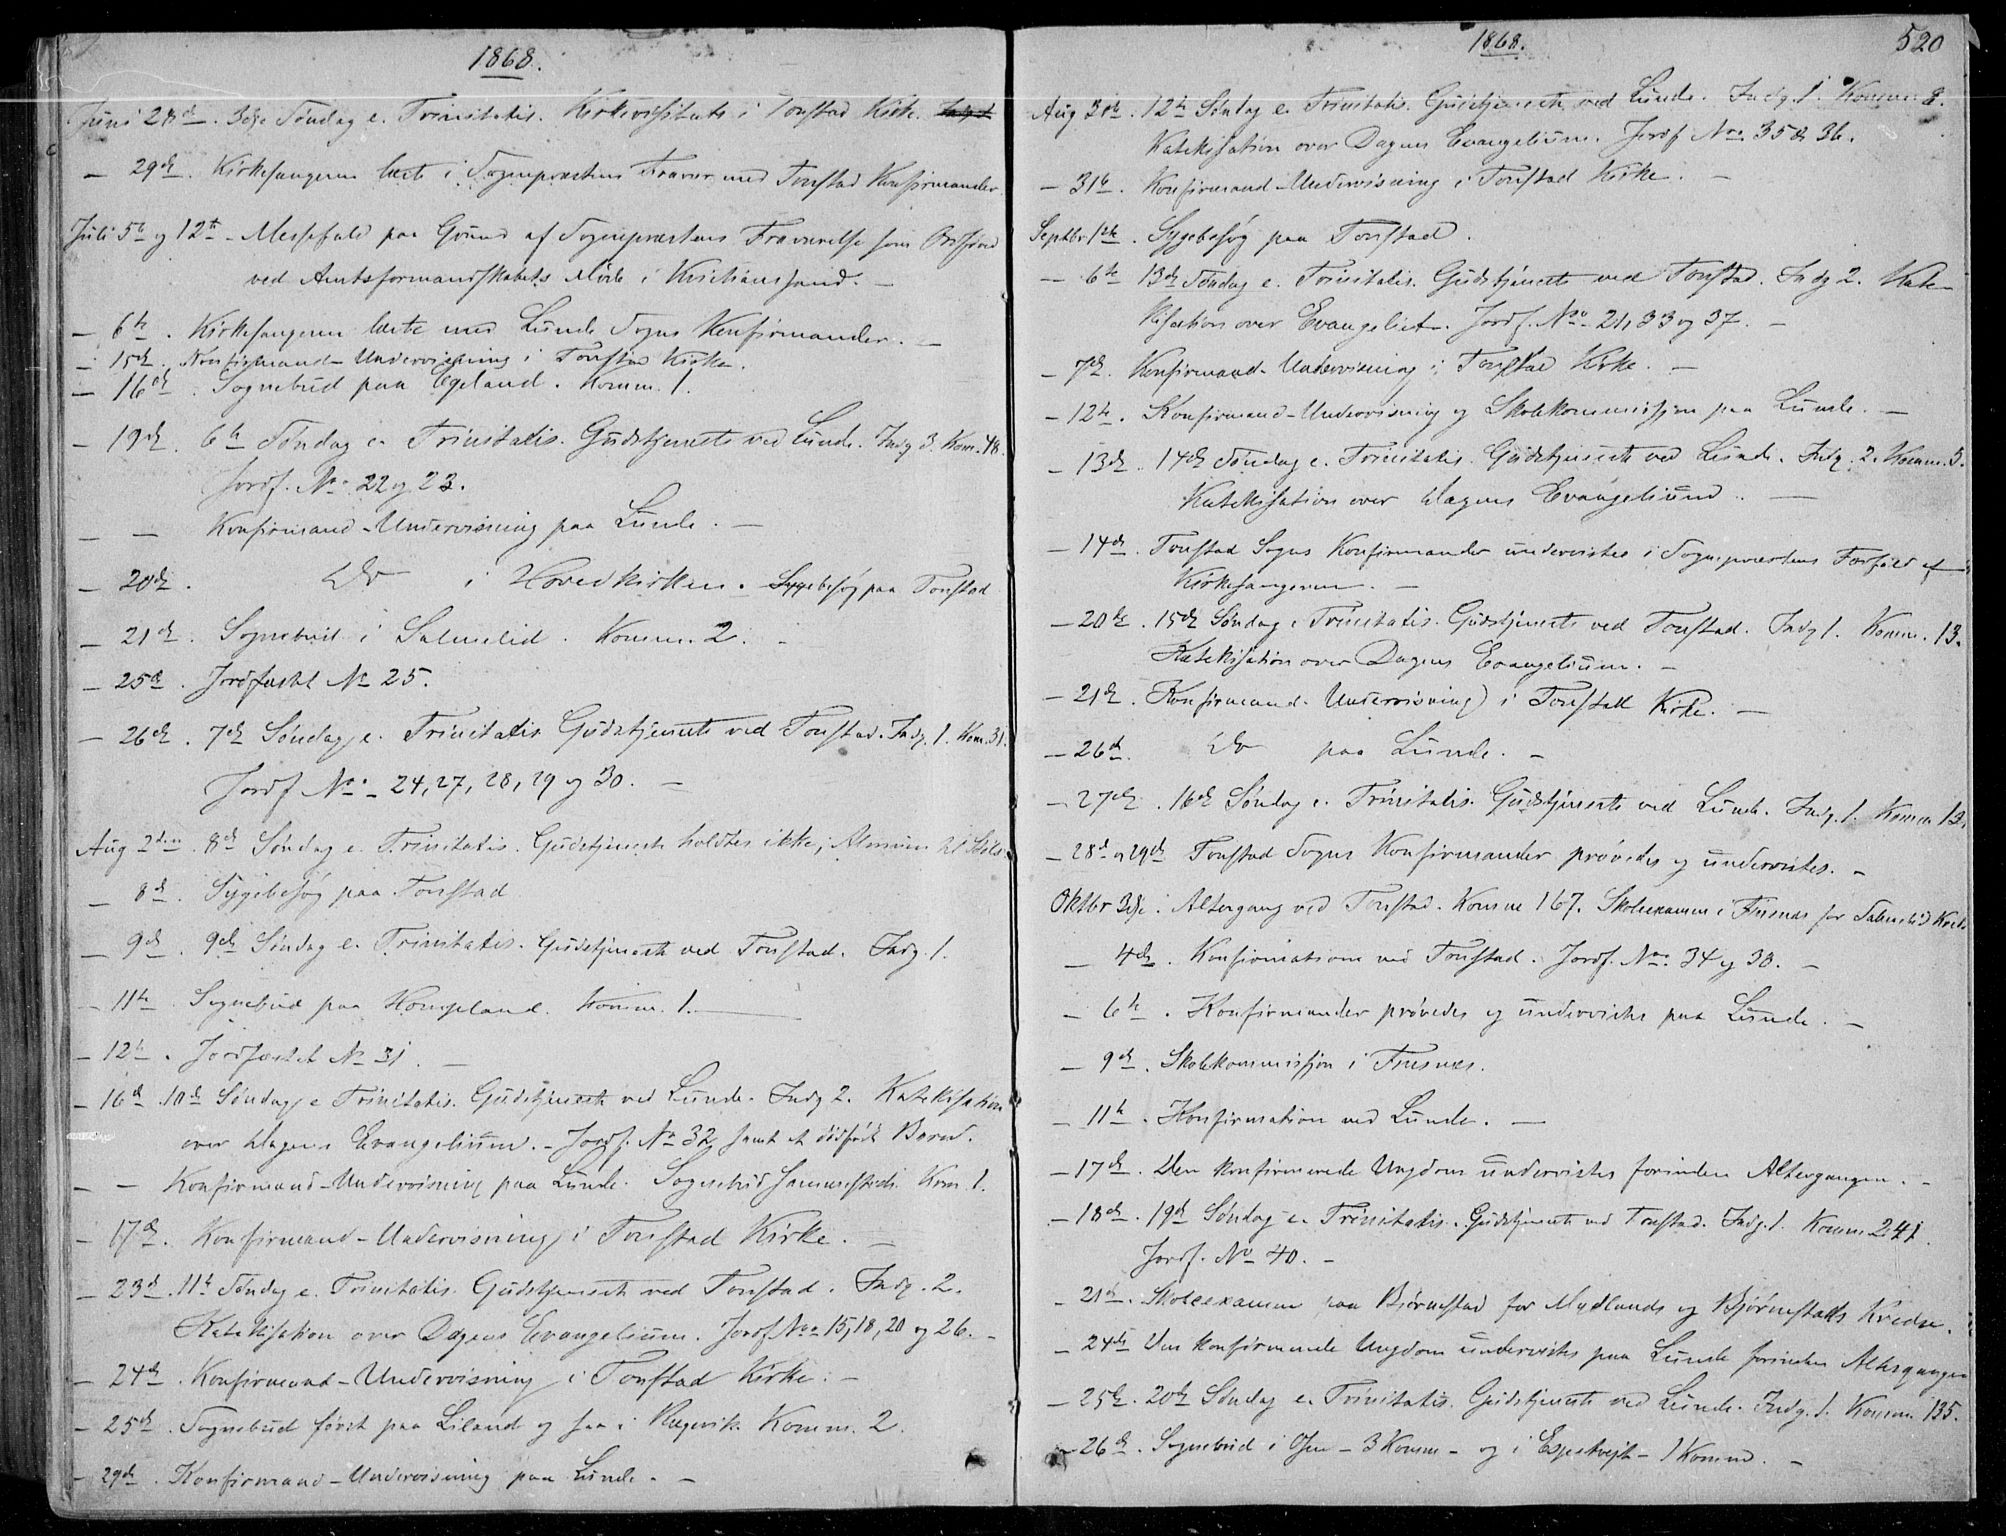 1868.
Juni 28de. 3die Søndag e. Trinitatis. Kirkevisitats i Tonstad Kirke.
— 29de. Kirkesangeren læste i Sognepræstens Fravær med Tonstad Konfirmander.
Juli 5te og 12te – Messefald paa Grund af Sognepræstens Fraværelse som Ordfører
ved Amtsformandskabets Møde i Kristianssand. –
— 6te. Kirkesangeren læste med Lunde Sogns Konfirmander. –
— 15de. Konfirmand-Undervisning i Tonstad Kirke.
— 16de. Sognebud paa Egeland. Komm. 1.
— 19de. 6te Søndag e. Trinitatis. Gudstjeneste ved Lunde. Indg. 3. Kom. 48.
Jordf. No. 22 og 23.
— — Konfirmand-Undervisning paa Lunde. –
— 20de. Do i Hovedkirken. Sygebesøg paa Tonstad
— 21de. Sognebud i Salmelid. Komm. 2. –
— 25de. Jordfæstet No 25.
— 26de. 7de Søndag e. Trinitatis Gudstjeneste ved Tonstad. Indg. 1. Kom. 31.
Jordf No. – 24, 27, 28, 29 og 30. –
Aug 2den. 8de Søndag e. Trinitatis. Gudstjeneste holdtes ikke;
— 8de. Sygebesøg paa Tonstad
— 9de. 9de Søndag e. Trinitatis. Gudstjeneste ved Tonstad. Indg. 1.
— 11te. Sognebud paa Hompland. Komm. 1.
— 12te. Jordfæstet No 31. –
— 16de. 10de Søndag e Trinitatis. Gudstjeneste ved Lunde. Indg 2. Katekisation
over Dagens Evangelium. – Jordf. No 32, samt et dødfødt Barn.
— — Konfirmand-Undervisning paa Lunde. Sognebud sammesteds. Kom. 1.
— 17de. Konfirmand-Undervisning i Tonstad Kirke. –
— 23de. 11te Søndag e. Trinitatis. Gudstjeneste ved Tonstad. Indg. 2.
Katekisation over Dagens Evangelium. Jordf No. 15, 18, 20 og 26. –
— 24de. Konfirmand-Undervisning i Tonstad Kirke. –
— 25de. Sognebud først paa Liland og saa i Rægevik. Komm. 2.
— 29de. Konfirmand-Undervisning paa Lunde. –
1868.
520
Aug 30te. 12te Søndag e. Trinitatis. Gudstjeneste ved Lunde. Indg. 1. Komm. 8.
Katekisation over Dagens Evangelium. Jordf No. 35 & 36.
— 31te. Konfirmand-Undervisning i Tonstad Kirke. –
Septbr 1ste. Sygebesøg paa Tonstad.
— 6te 13de Søndag e. Trinitatis. Gudstjeneste ved Tonstad. Indg 2. Kate-
kisation over Evangeliet. Jordf. No. 21, 33 og 37. –
— 7de. Konfirmand-Undervisning i Tonstad Kirke. –
— 12te. Konfirmand-Undervisning og Skolekommission paa Lunde. –
— 13de. 14de Søndag e. Trinitatis. Gudstjeneste ved Lunde. Indg. 2. Komm. 5.
Katekisation over Dagens Evangelium. –
— 14de. Tonstad Sogns Konfirmander undervistes i Sognepræstens Forfald af
Kirkesangeren. –
— 20de. 15de Søndag e Trinitatis. Gudstjeneste ved Tonstad. Indg 1. Komm. 13.
Katekisation over Dagens Evangelium. –
— 21de. Konfirmand-Undervisning i Tonstad Kirke. –
— 26de. Do paa Lunde. –
— 27de. 16de Søndag e. Trinitatis. Gudstjeneste ved Lunde. Indg. 1. Komm 13.
— 28de og 29de Tonstad Sogns Konfirmander prøvedes og undervistes. –
Oktbr 3die. Altergang ved Tonstad. Komm 167. Skoleexamen i Fusnæs for Salmelid Kreds
— 4de. Konfirmation ved Tonstad. Jordf. No. 34 og 38. –
— 6te. Konfirmander prøvedes og undervistes paa Lunde. –
— 9de. Skolekommission i Fusnæs.
— 11te. Konfirmation ved Lunde. —
— 17de. Den konfirmerede Ungdom undervistes forinden Altergangen. –
— 18de. 19de Søndag e. Trinitatis. Gudstjeneste ved Tonstad. Indg. 1. Komm 241.
Jordf. No 40. –
— 21de. Skoleexamen paa Bjørnestad for Mydlands og Bjørnestads Kredse.
— 24de Den konfirmerede Ungdom undervistes paa Lunde forinden Altergangen
— 25de. 20de Søndag e. Trinitatis. Gudstjeneste ved Lunde. Indg. 1. Komm. 135.
— 26de. Sognebud i Osen – 3 Komm – og i Espetvejt – 1 Komm. –